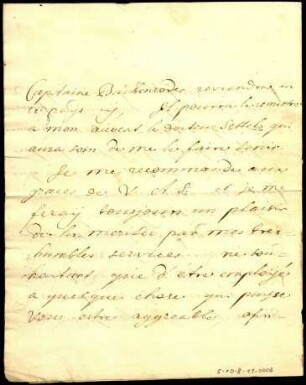 Capitaine reviendra en
ce pays cy, Il pourra le remettre
a mon advocat le docteur qui
aura soin de me le faire tenir
Je me recommande aux
graces de V. A. S. et je me
feray tousjours un plaisir
de la meriter par mes tres
humbles services ne sou
haitant que d'etre employé
a quelque chose qui puisse
vous estre aggreable afin